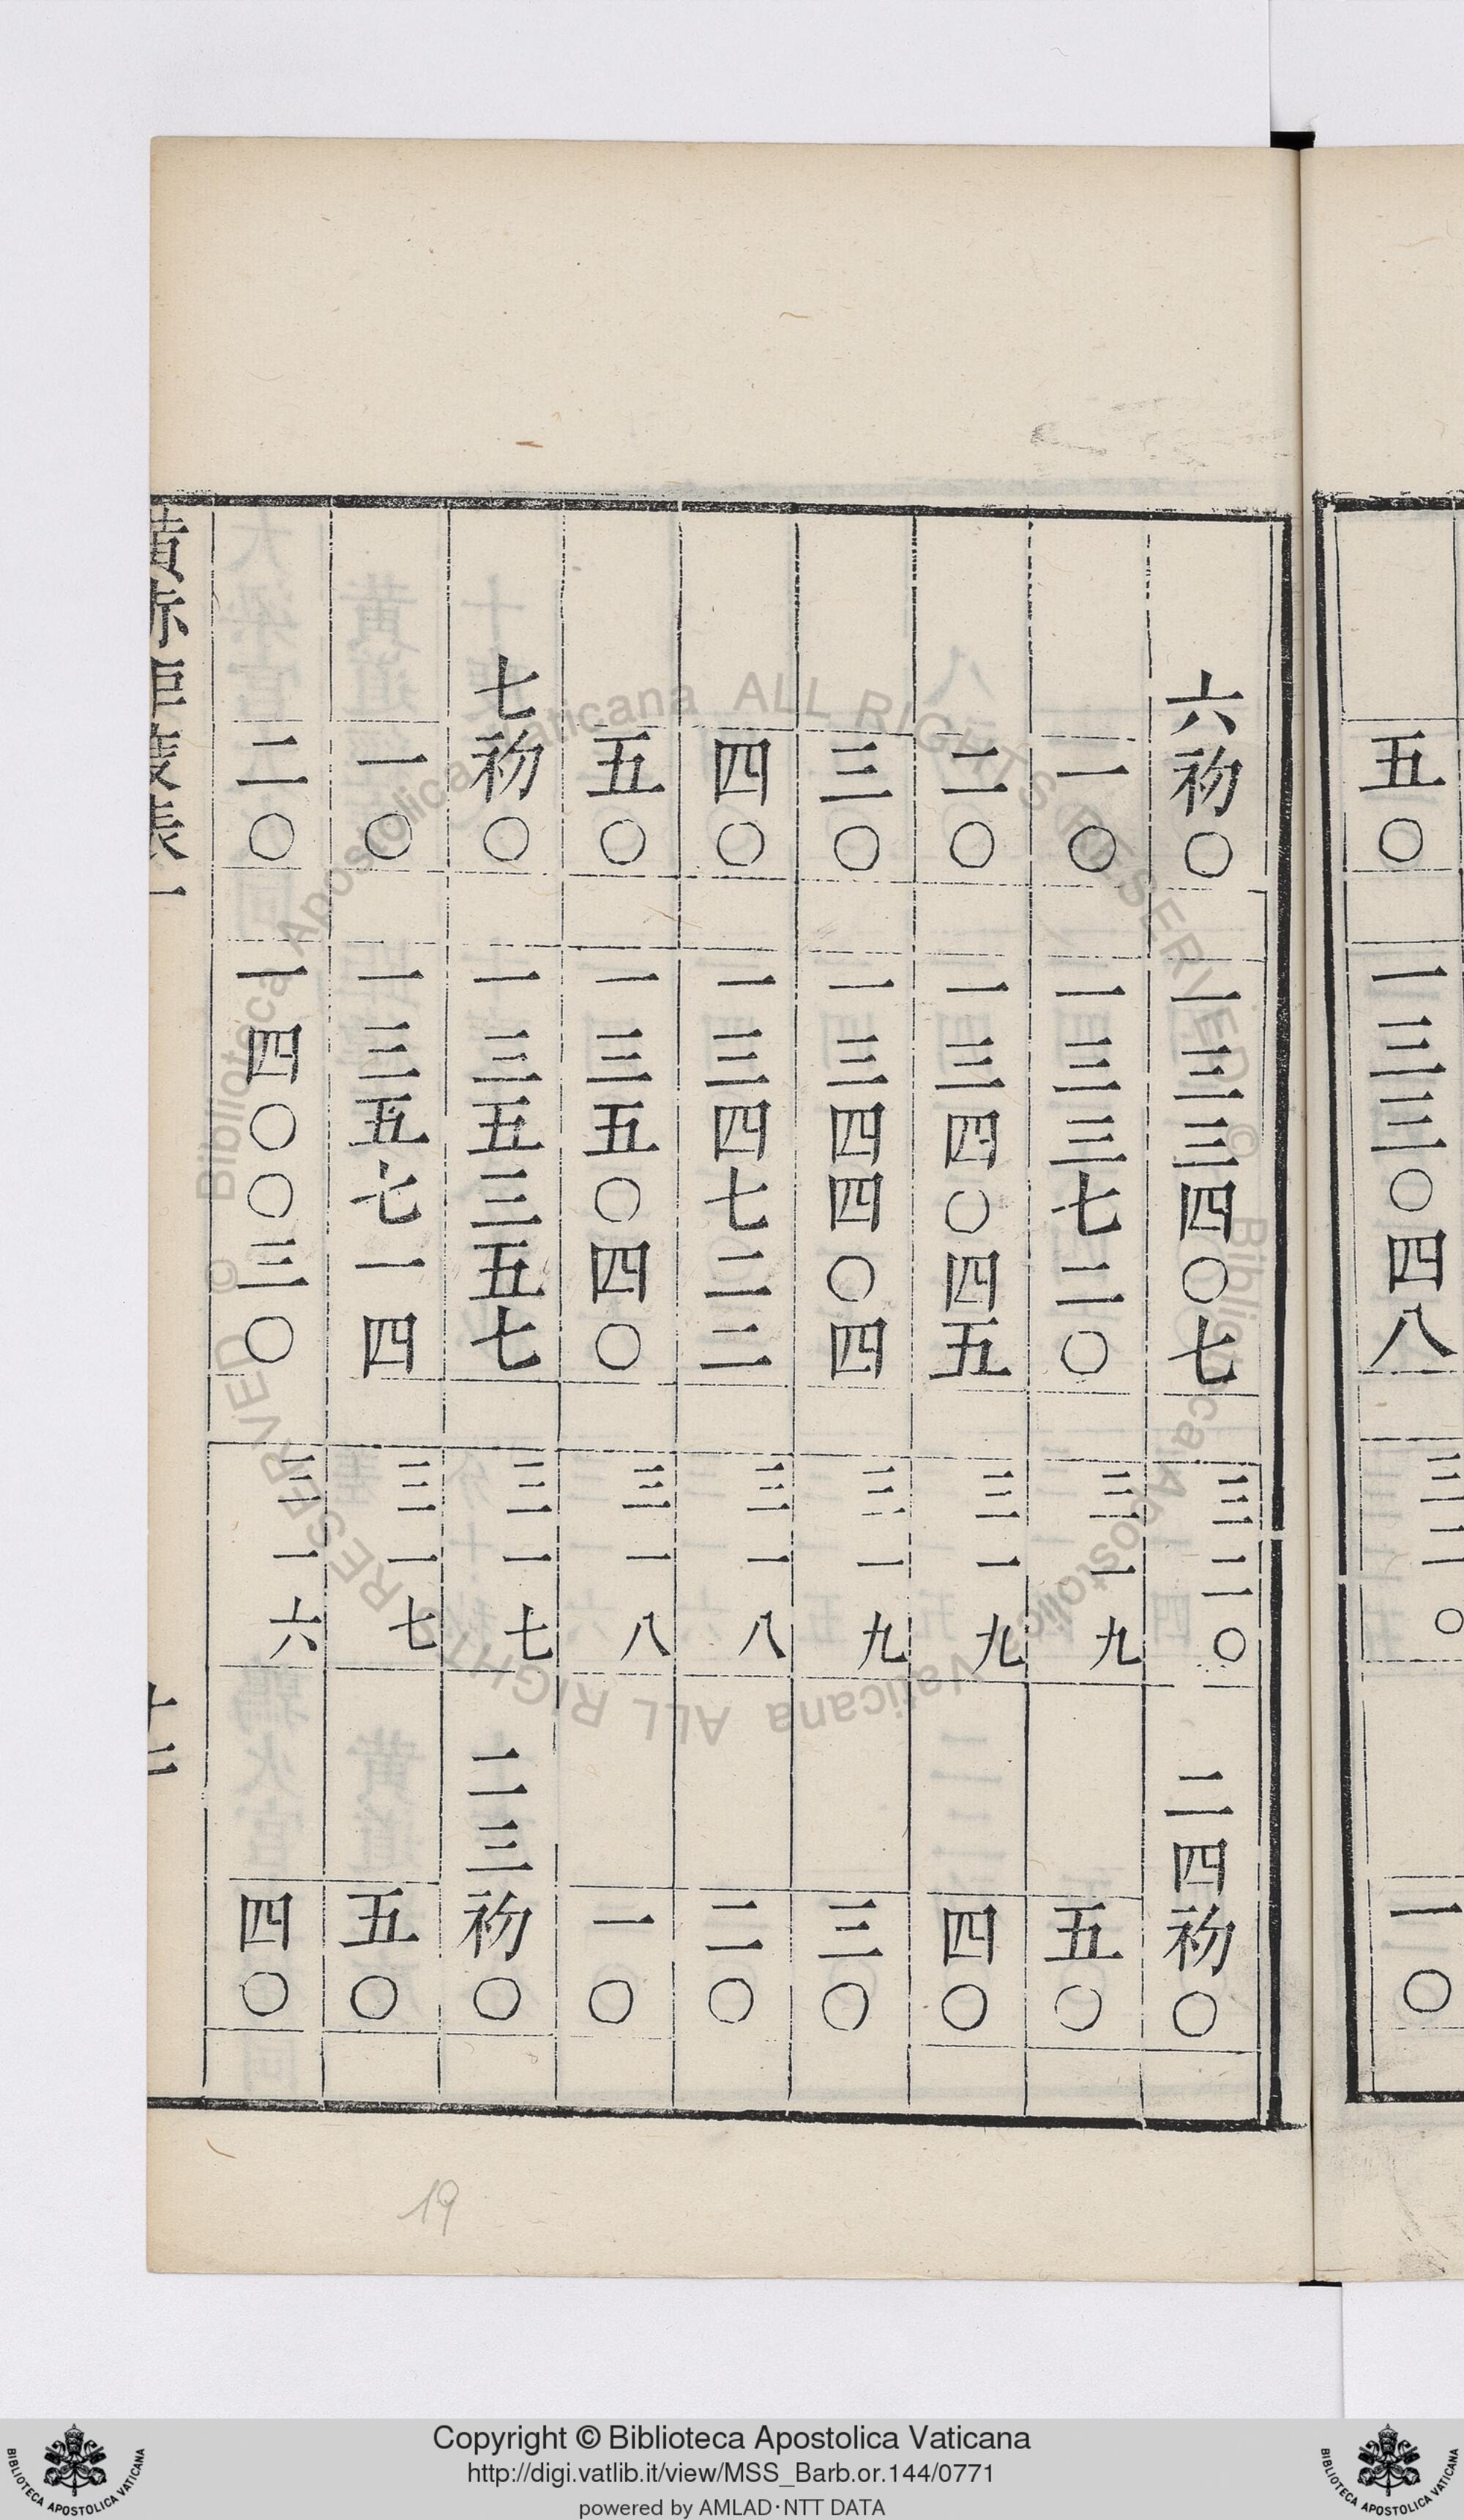 五〇 一三三〇四八 三二〇 一〇
六初〇 一三三四〇七 三二〇 二四初〇
一〇 一三三七二〇 三一九 五〇
二〇 一三四〇四五 三一九 四〇
三〇 一三四四〇四 三一九 三〇
四〇 一三四七二二 三一八 二〇
五〇 一三五〇四〇 三一八 一〇
七初〇 一三五三五七 三一七 二三初〇
一〇 一三五七一四 三一七 五〇
二〇 一四〇〇三〇 三一六 四〇
19
Copyright © Biblioteca Apostolica Vaticana
http://digi.vatlib.it/view/MSS_Barb.or.144/0771
powered by AMLAD·NTT DATA